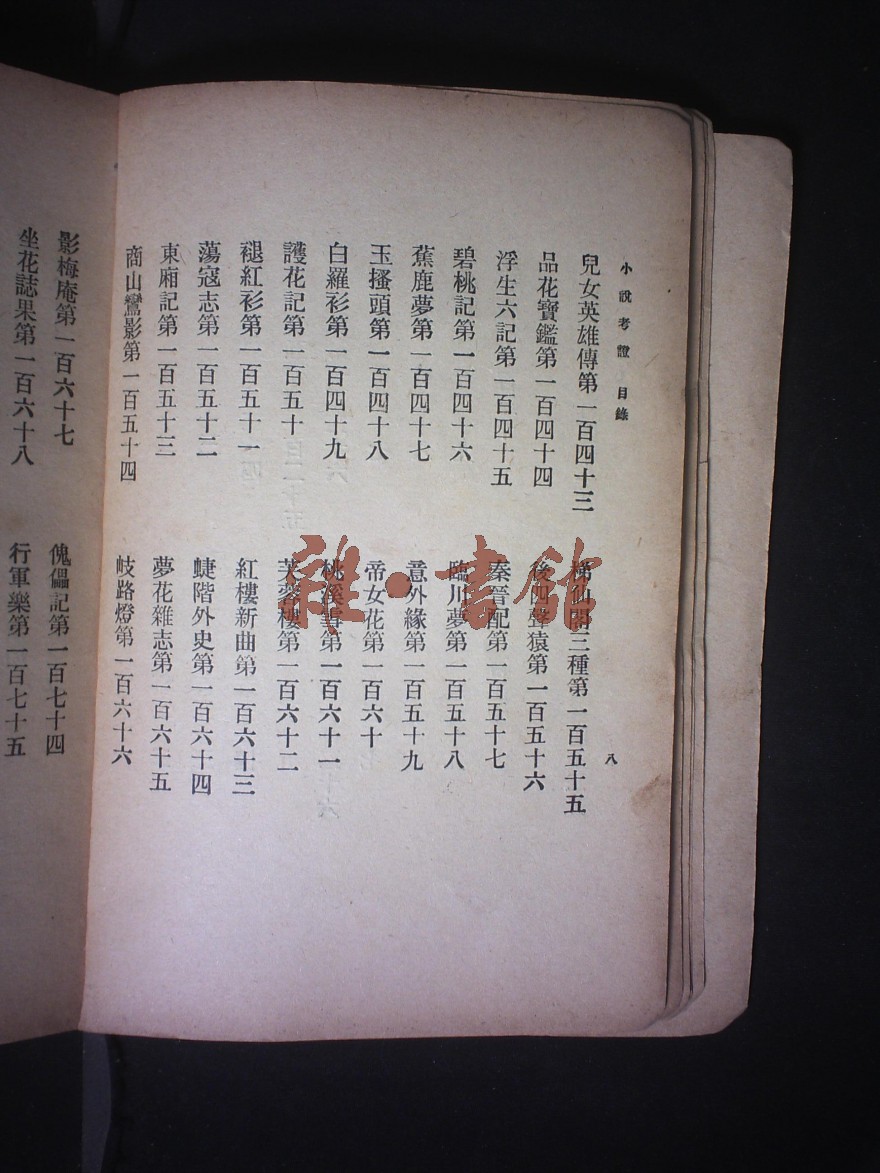 小說考證 目錄
八
兒女英雄傳第一百四十三
品花寶鑑第一百四十四
浮生六記第一百四十五
碧桃記第一百四十六
蕉鹿夢第一百四十七
玉搔頭第一百四十八
白羅衫第一百四十九
護花記第一百五十
褪紅衫第一百五十一
蕩寇志第一百五十二
東廂記第一百五十三
商山鸞影第一百五十四
梯仙閣三種第一百五十五
後四聲猿第一百五十六
秦晉配第一百五十七
臨川夢第一百五十八
意外緣第一百五十九
帝女花第一百六十
桃溪雪第一百六十一
芙蓉樓第一百六十二
紅樓新曲第一百六十三
蜨階外史第一百六十四
夢花雜志第一百六十五
岐路燈第一百六十六
影梅庵第一百六十七
坐花誌果第一百六十八
傀儡記第一百七十四
行軍樂第一百七十五
雜·書館